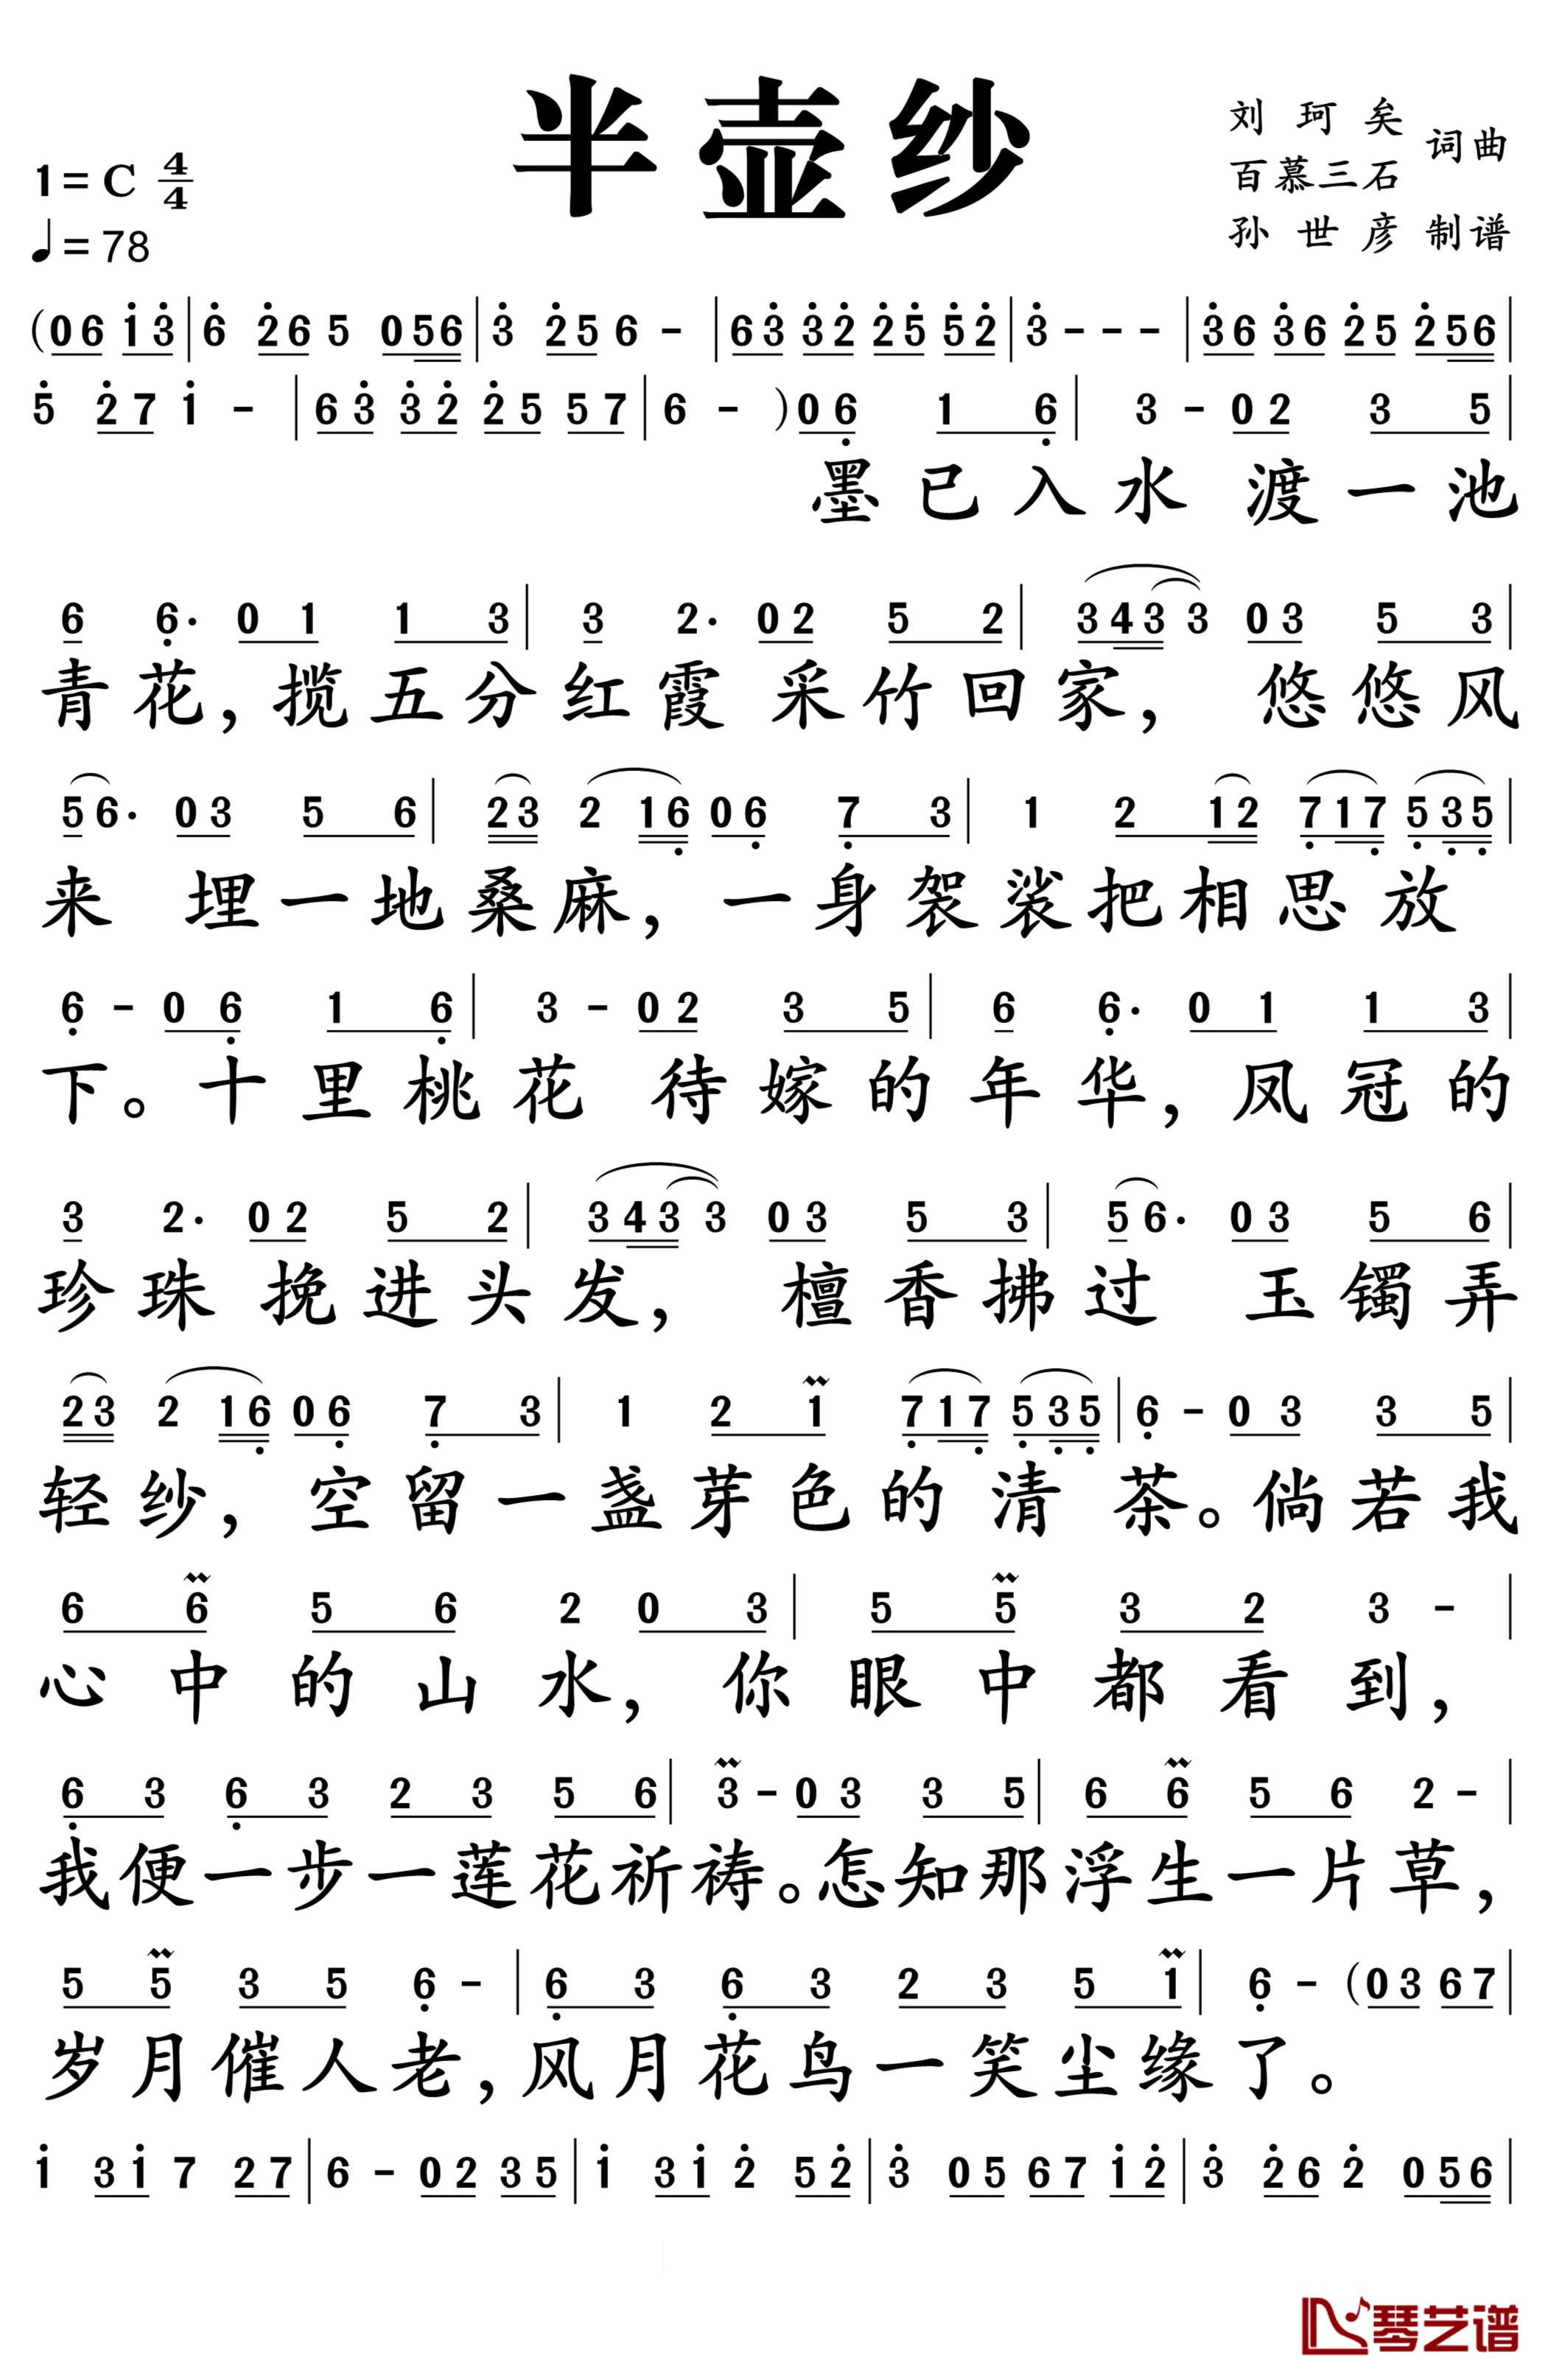 半壶纱
1=C 4/4
♩=78
刘珂矣 词曲
百慕三石
孙世彦 制谱
(06 1̇3̇|6̇ 2̇6 5 056|3̇ 2̇5 6 -|63̇ 3̇2̇ 2̇5̇ 5̇2̇|3̇ - - -|3̇6 3̇6 2̇5 2̇56|
5̇ 2̇7 1̇ -|63̇ 3̇2̇ 2̇5 57|6 - )06̣ 1 6̣|3 - 02 3 5|
墨已入水 渡一池
6 6̣· 01 1 3|3 2· 02 5 2|3433 03 5 3|
青花,揽五分红霞 采竹回家, 悠悠风
56· 03 5 6|23 2 16̣ 06̣ 7̣ 3|1 2 12 7̣17̣ 5̣3̣5̣|
来 埋一地桑麻,一身袈裟把相思放
6̣ - 06̣ 1 6̣|3 - 02 3 5|6 6̣· 01 1 3|
下。十里桃花 待嫁的年华,凤冠的
3 2· 02 5 2|3433 03 5 3|56· 03 5 6|
珍珠 挽进头发, 檀香拂过 玉镯弄
23 2 16̣ 06̣ 7̣ 3|1 2 1 7̣17̣ 5̣3̣5̣|6̣ - 03 3 5|
轻纱,空留一盏芽色的清茶。倘若我
6 6 5 6 2 0 3|5 5 3 2 3 -|
心中的山水,你眼中都看到,
6̣ 3 6̣ 3 2 3 5 6|3 - 03 3 5|6 6 5 6 2 -|
我便一步一莲花祈祷。怎知那浮生一片草,
5 5 3 5 6̣ -|6̣ 3 6̣ 3 2 3 5 1|6̣ - (03 67|
岁月催人老,风月花鸟一笑尘缘了。
1̇ 31̇ 7 27|6 - 02 35|1̇ 31̇ 2̇ 52̇|3̇ 05 67 1̇2̇|3̇ 2̇6 2̇ 056|
琴艺谱